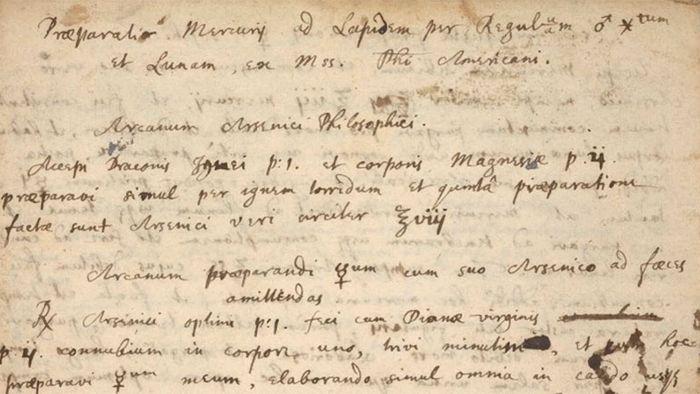 Præparatio Mercurij ad Lapidem per Regulum ♂ ✶tum
et Lunam, ex Mss. Phi Americani.
Arcanum Arsenici Philosophici.
Accepi Draconis Ignei p:1. et corporis Magnesiæ p. ij
præparavi simul per ignem torridum et quintâ præparatione
factæ sunt Arsenici veri circiter ℥viij
Arcanum præparandi ☿um cum suo Arsenico ad fæces
amittendas
℞ Arsenici optimi p:1. feci cum Dianæ virginis
p. ij connubium in corpore uno, trivi minutim, et cum hoc
præparavi ☿um meum, elaborando simul omnia in